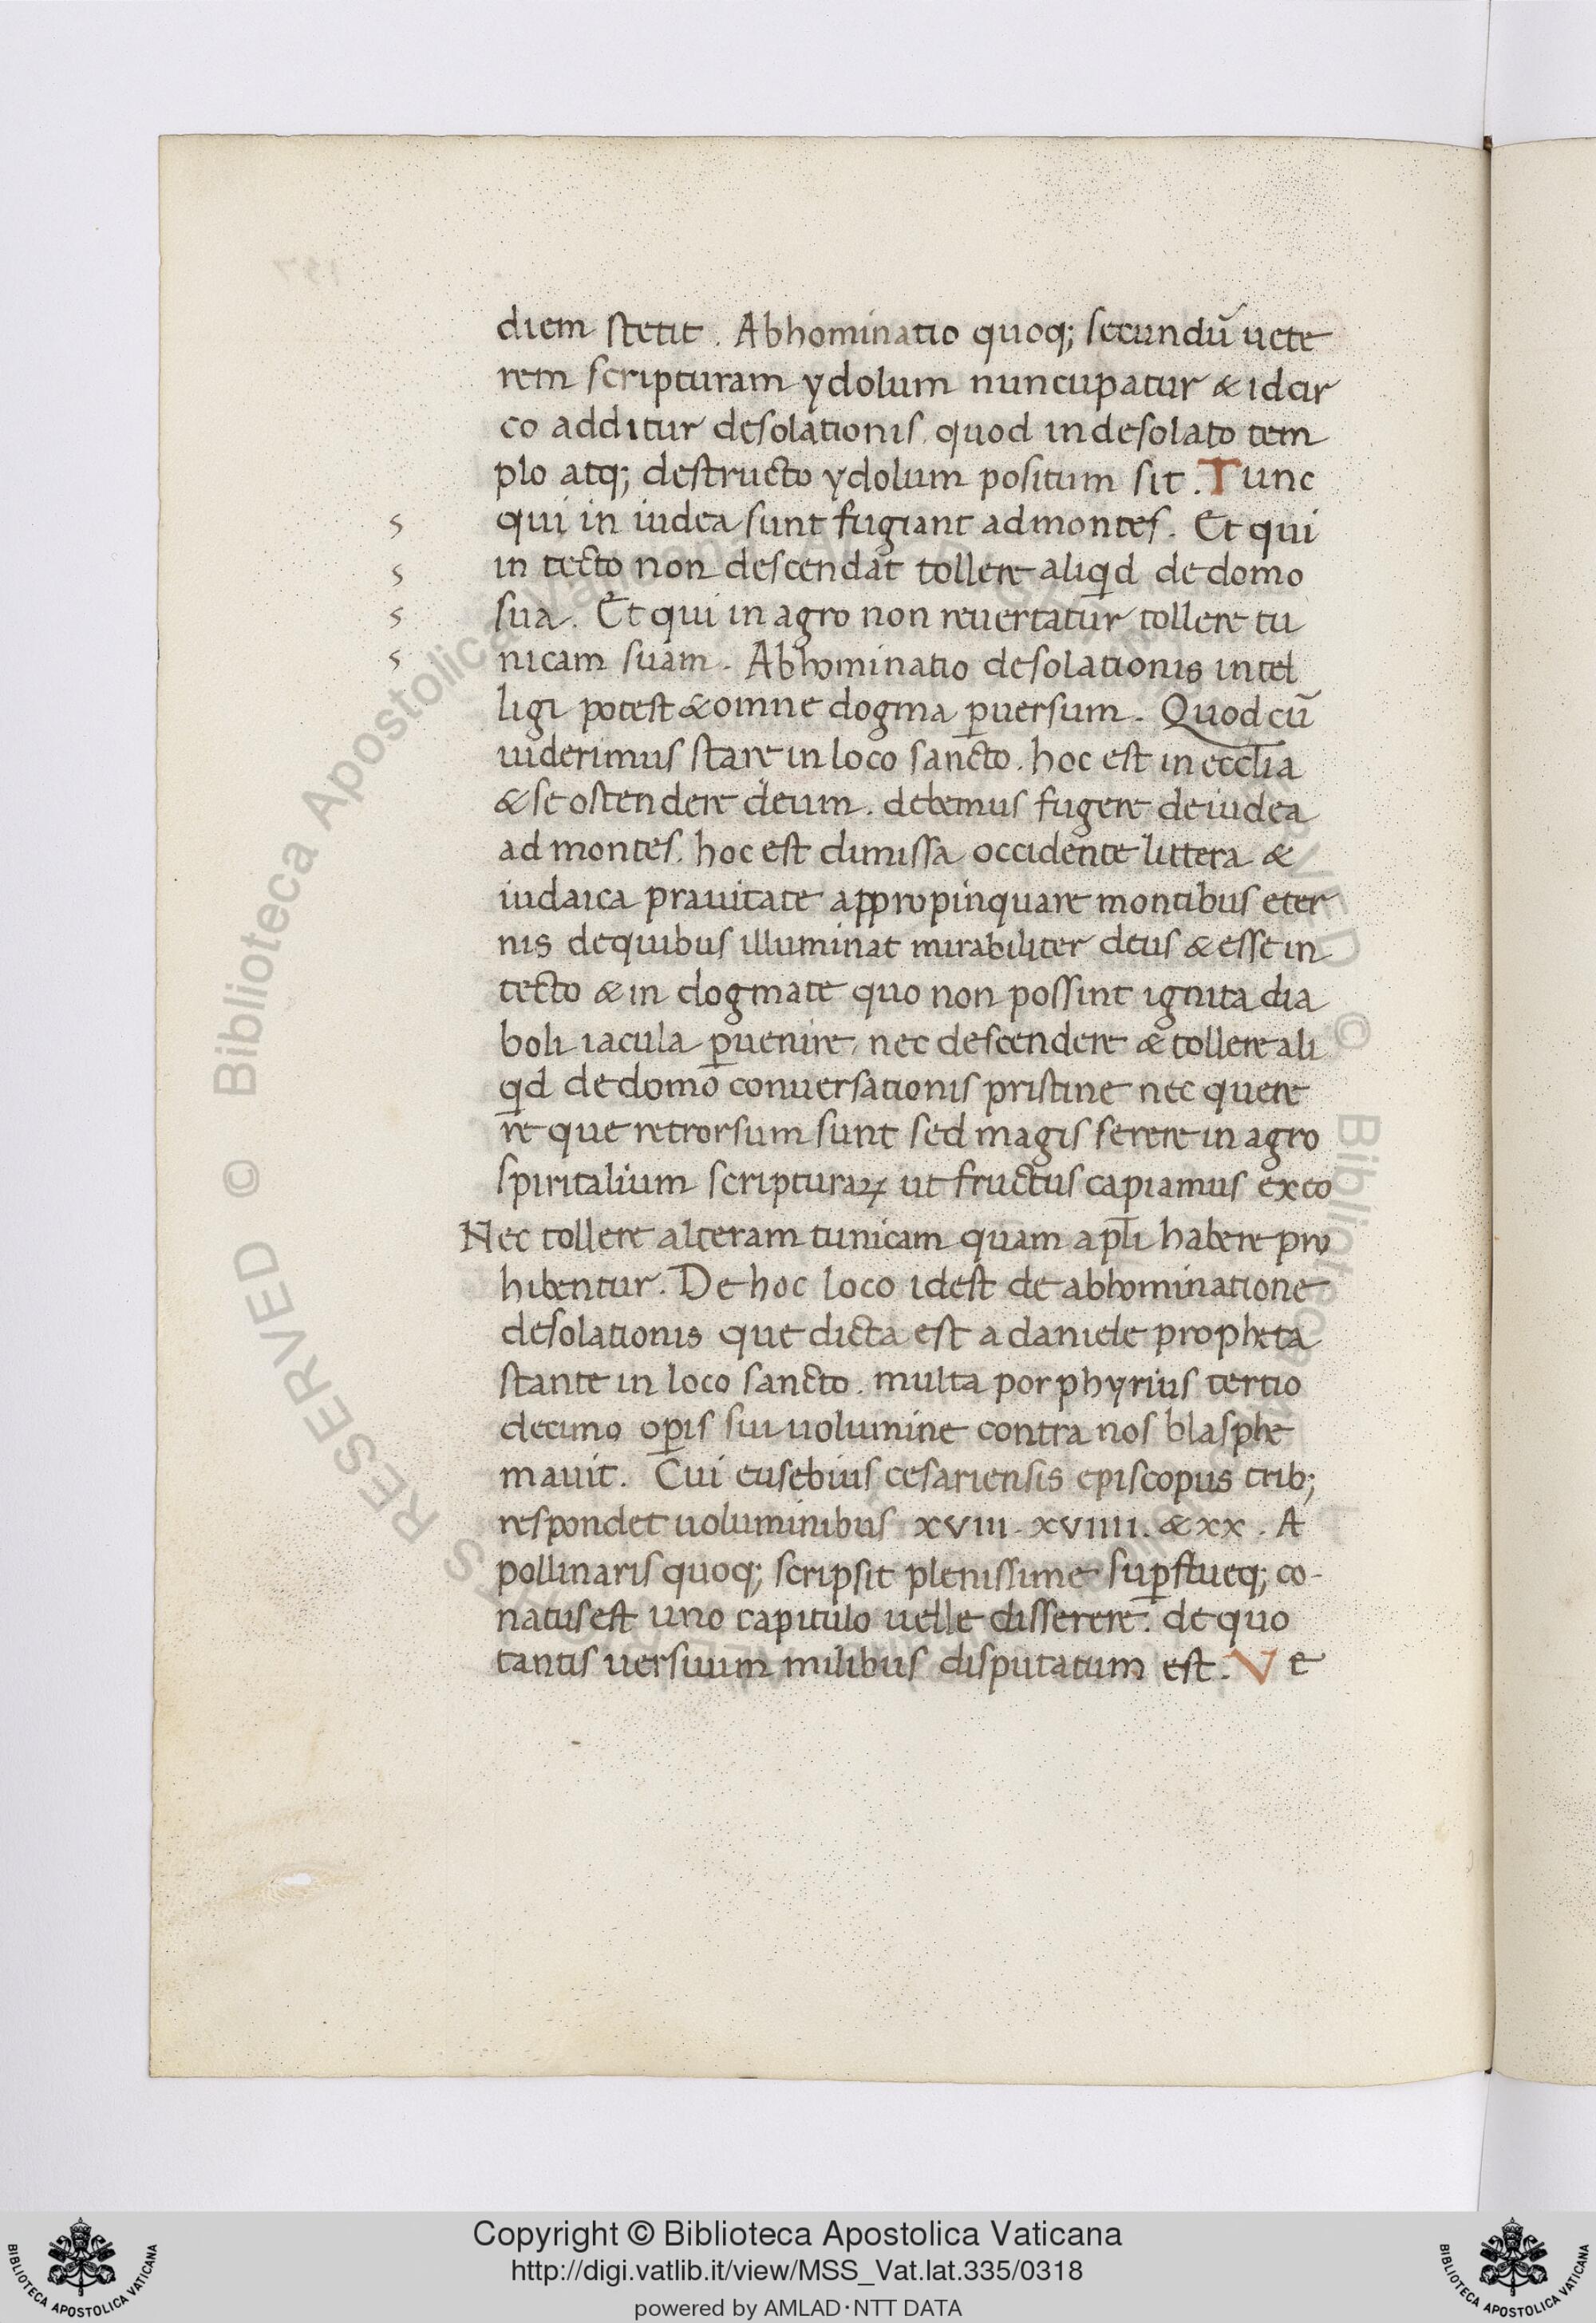 diem stetit. Abhominatio quoq; secundū uete
rem scripturam ydolum nuncupatur & idcir
co additur desolationis quod in desolato tem
plo atq; destructo ydolum positum sit. Tunc
s qui in iudea sunt fugiant ad montes. Et qui
s in tecto non descendat tollere aliqd de domo
s sua. Et qui in agro non reuertatur tollere tu
s nicam suam. Abhominatio desolationis intel
ligi potest & omne dogma puersum. Quod cū
uiderimus stare in loco sancto. hoc est in ecclia
& se ostendere deum. debemus fugere de iudea
ad montes. hoc est dimissa occidente littera &
iudaica prauitate appropinquare montibus eter
nis de quibus illuminat mirabiliter deus & esse in
tecto & in dogmate quo non possint ignita dia
boli iacula puenire, nec descendere & tollere ali
qd de domo conuersationis pristine nec quere
re que retrorsum sunt sed magis serere in agro
spiritalium scripturaꝝ ut fructus capiamus ex eo
Nec tollere alteram tunicam quam apli habere pro
hibentur. De hoc loco idest de abhominatione
desolationis que dicta est a daniele propheta
stante in loco sancto. multa porphyrius tertio
decimo opis sui uolumine contra nos blasphe
mauit. Cui eusebius cesariensis episcopus trib;
respondet uoluminibus xviii. xviiii. & xx. A
pollinaris quoq; scripsit plenissime supflueq; co-
natus est uno capitulo uelle disserere. de quo
tantis uersuum milibus disputatum est. Ve
Copyright © Biblioteca Apostolica Vaticana
http://digi.vatlib.it/view/MSS_Vat.lat.335/0318
powered by AMLAD·NTT DATA
BIBLIOTECA APOSTOLICA VATICANA
BIBLIOTECA APOSTOLICA VATICANA